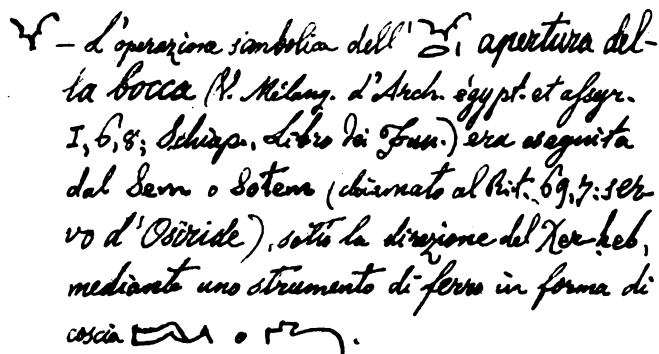 – L'operazione simbolica dell' , apertura del-
la bocca (V. Mélang. d'Arch. égypt. et assyr.
I, 6, 8; Schiap., Libro dei Fun.) era eseguita
dal Sem o Sotem (chiamato al Rit. 69, 7: ser-
vo d'Osiride), sotto la direzione del Xer-heb,
mediante uno strumento di ferro in forma di
coscia o .